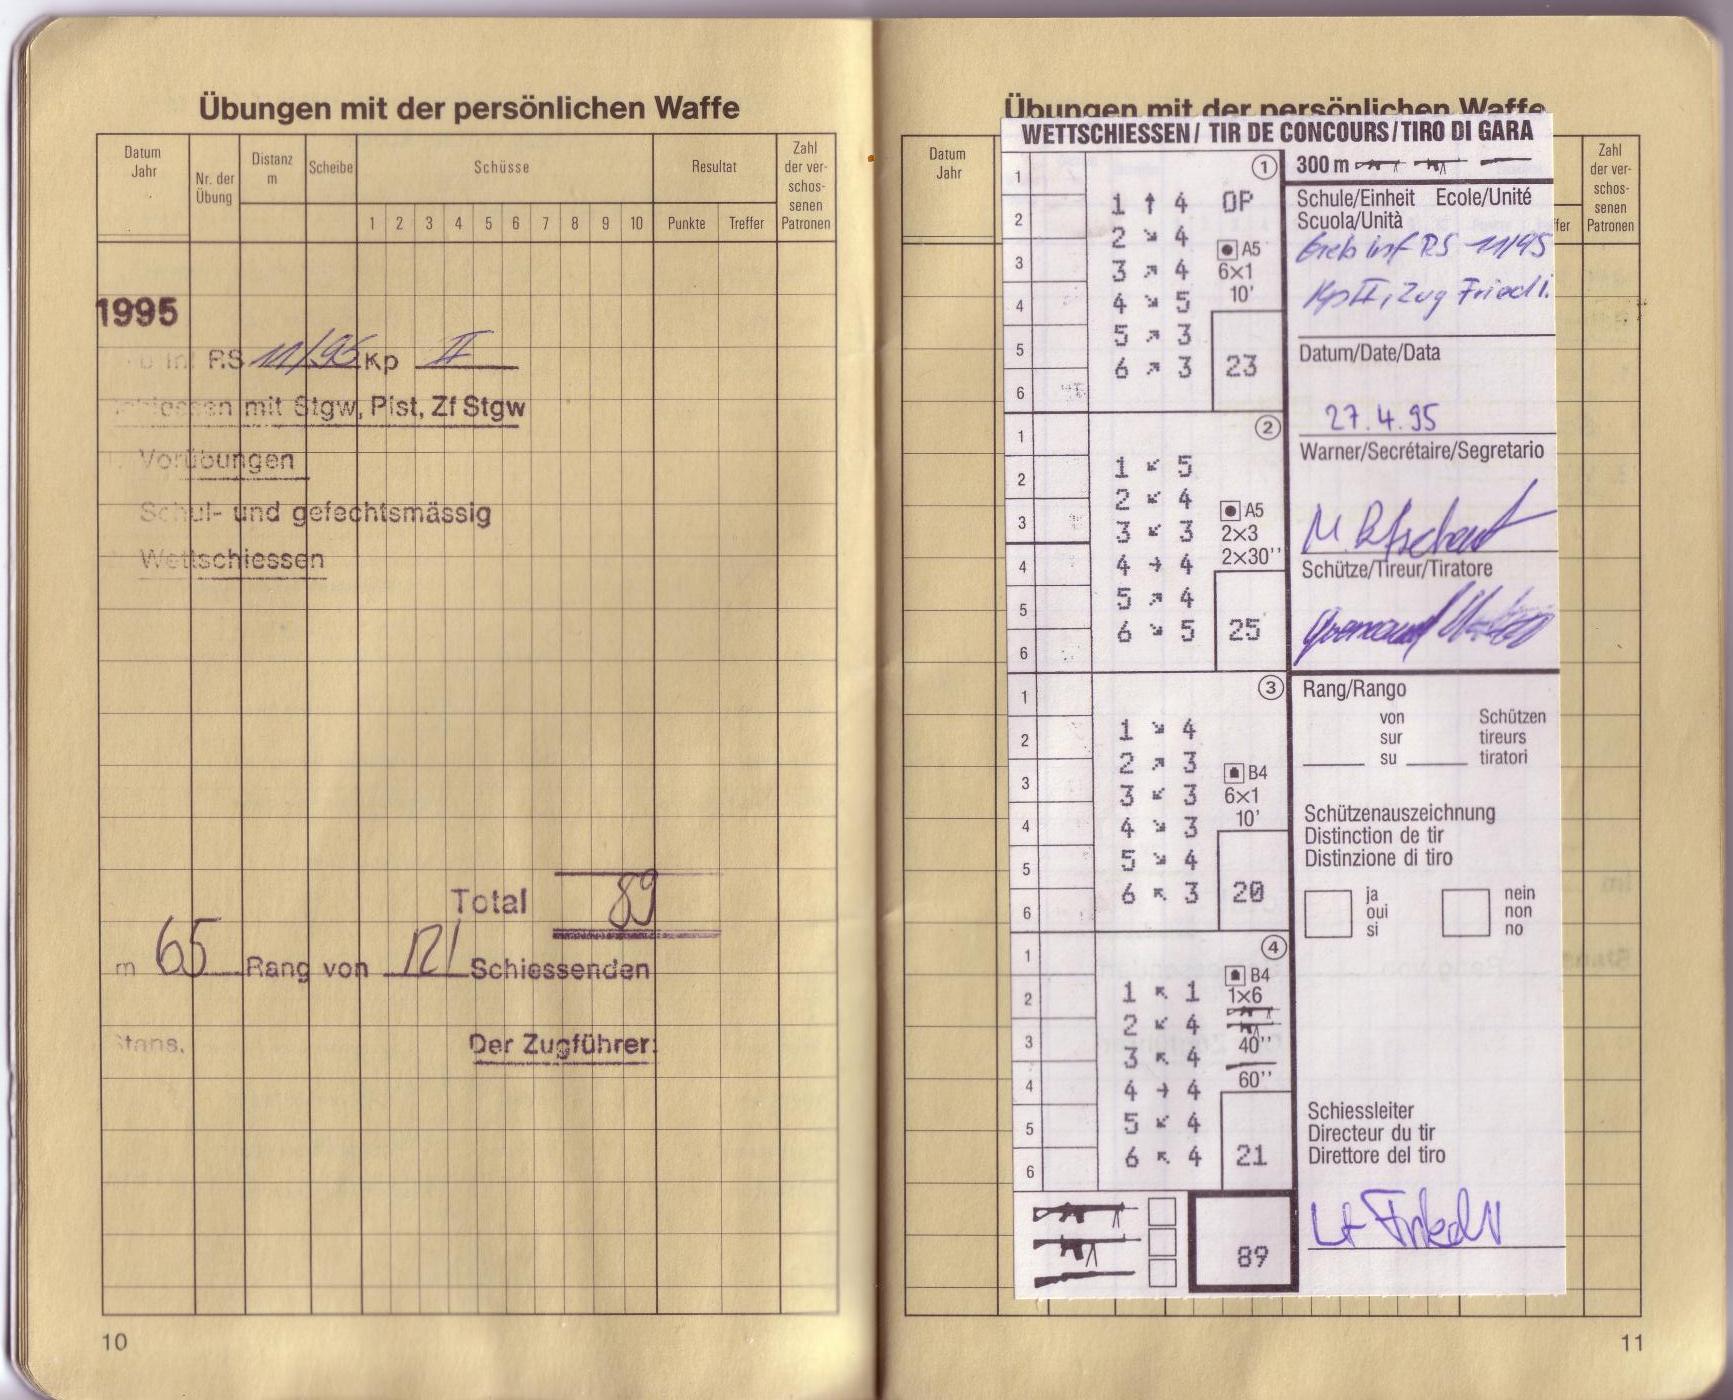 Übungen mit der persönlichen Waffe
Datum
Jahr
Nr. der
Übung
Distanz
m
Scheibe
Schüsse
Resultat
Zahl
der ver-
schos-
senen
Patronen
1 2 3 4 5 6 7 8 9 10
Punkte Treffer
1995
RS 11/95 Kp II
mit Stgw, Pist, Zf Stgw
Vorübungen
Schul- und gefechtsmässig
Wettschiessen
Total 89
65 Rang von 121 Schiessenden
Stans,
Der Zugführer:
10
Übungen mit der persönlichen Waffe
Datum
Jahr
Zahl
der ver-
schos-
senen
Patronen
WETTSCHIESSEN / TIR DE CONCOURS / TIRO DI GARA
1
2
3
4
5
6
①
1 ↑ 4
2 ↘ 4
3 ↗ 4
4 ↘ 5
5 ↗ 3
6 ↗ 3
OP
A5
6×1
10'
23
1
2
3
4
5
6
②
1 ↙ 5
2 ↙ 4
3 ↙ 3
4 → 4
5 ↗ 4
6 ↘ 5
A5
2×3
2×30''
25
1
2
3
4
5
6
③
1 ↘ 4
2 ↗ 3
3 ↙ 3
4 ↘ 3
5 ↘ 4
6 ↖ 3
B4
6×1
10'
20
1
2
3
4
5
6
④
1 ↖ 1
2 ↙ 4
3 ↖ 4
4 → 4
5 ↙ 4
6 ↖ 4
B4
1×6
40''
60''
21
89
300 m
Schule/Einheit Ecole/Unité
Scuola/Unità
Geb inf RS 11/95
Kp II, Zug Friedli.
Datum/Date/Data
27.4.95
Warner/Secrétaire/Segretario
Schütze/Tireur/Tiratore
Rang/Rango
von Schützen
sur tireurs
su tiratori
Schützenauszeichnung
Distinction de tir
Distinzione di tiro
ja
oui
si
nein
non
no
Schiessleiter
Directeur du tir
Direttore del tiro
Lt Friedli
11